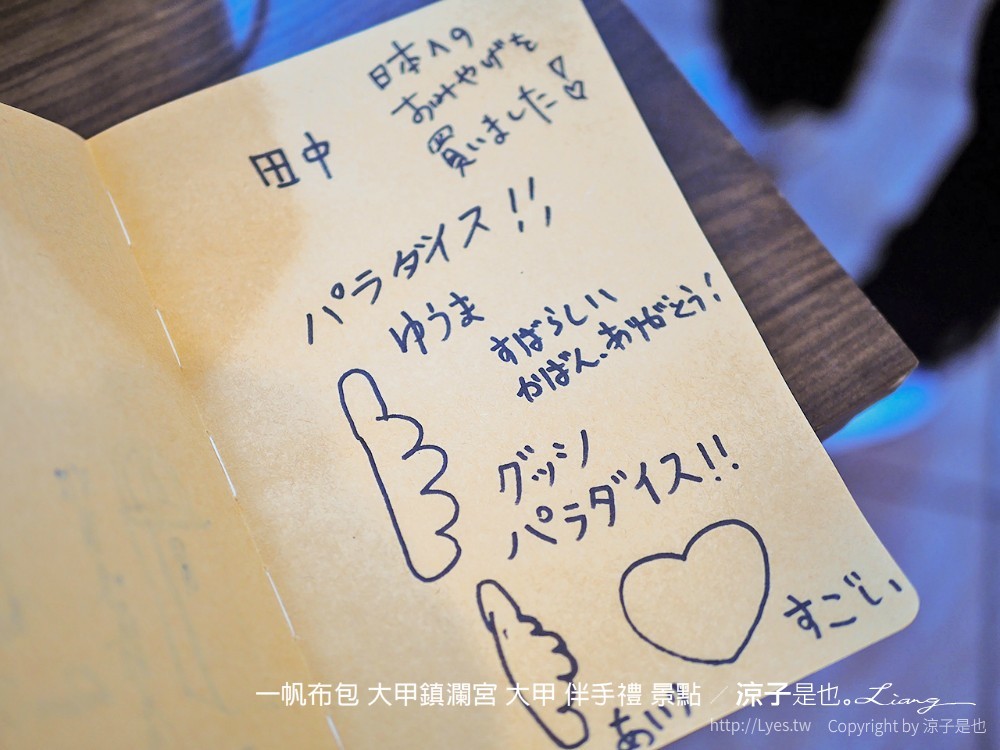 日本への
おみやげを
買いました!
田中
パラダイス!!
ゆうま
すばらしい
かばん、ありがとう!
グッシ
パラダイス!!
すごい
一帆布包 大甲鎮瀾宮 大甲 伴手禮 景點 ／ 涼子是也。Liang
http://Lyes.tw Copyright by 涼子是也